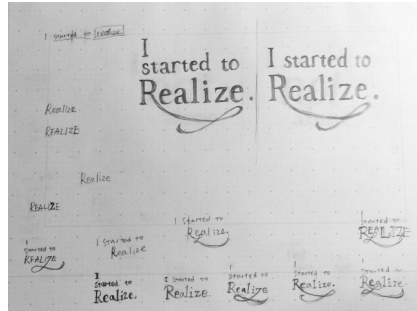 I started to realize
I
started to
Realize.
I started to
Realize.
Realize
REALIZE
Realize
REALIZE
I started to
Realize.
I
started to
REALIZE
I
started to
REALIZE
I started to
Realize
I
started to
Realize.
I started to
Realize.
I
started to
Realize
I
started to
Realize.
I
started to
Realize